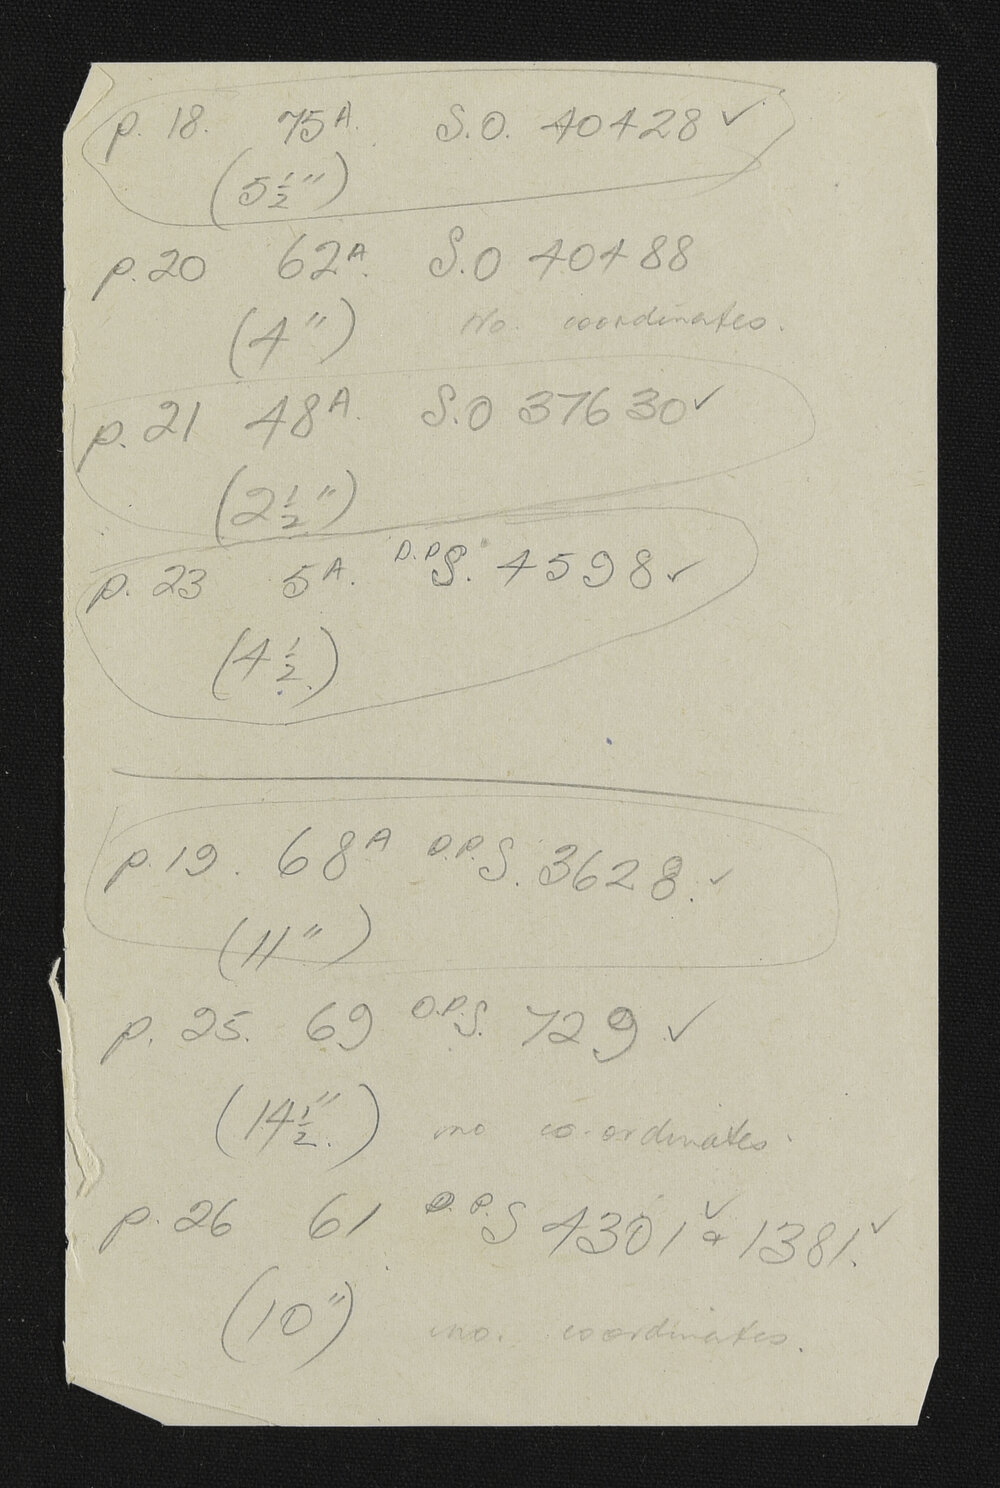 p. 18. 75A. S.O. 40428 ✓
(5½")
p. 20 62A. S.O 40488
(4") No. coordinates.
p. 21 48A. S.O 37630 ✓
(2½")
p. 23 5A. D.P.S. 4598 ✓
(4½.)
p. 19. 68A D.P.S. 3628. ✓
(11")
p. 25. 69 D.P.S. 729 ✓
(14½".) no co-ordinates.
p. 26 61 D.P.S 4301 ✓ & 1381. ✓
(10") no. coordinates.